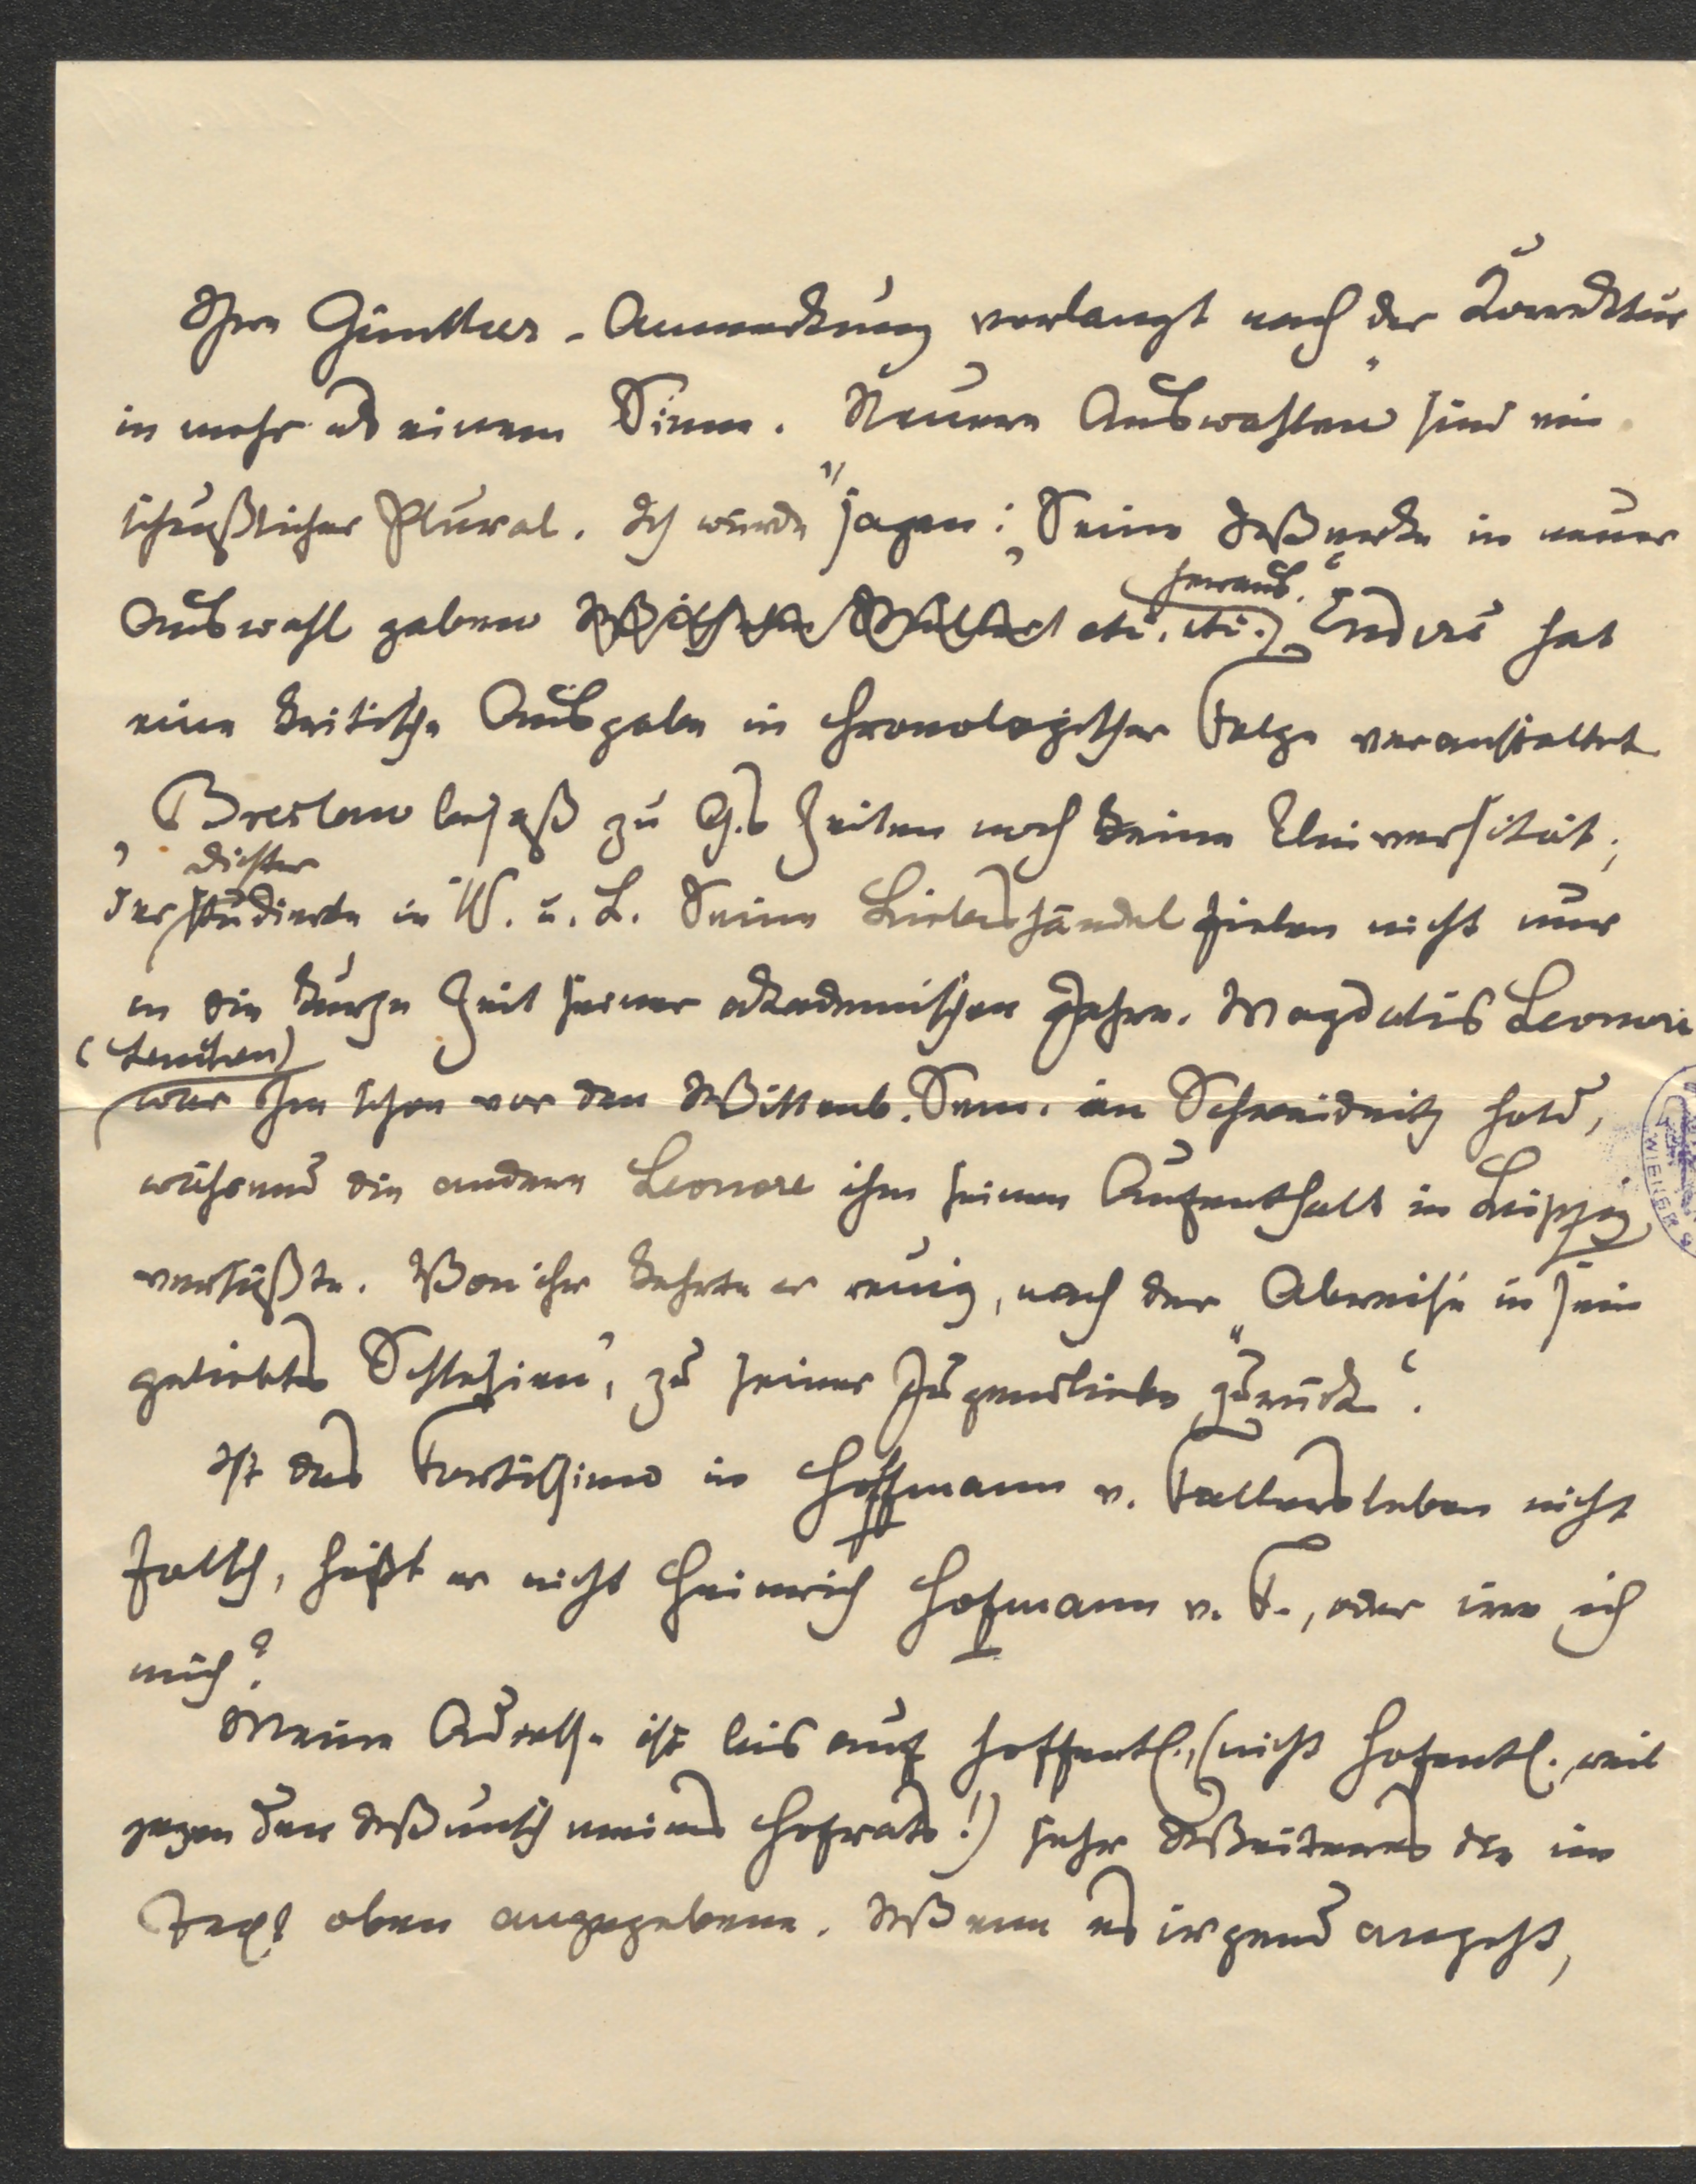 Ihre Günther-Anmerkung verlangt nach der Korrektur
in mehr als einem Sinne. „Neuere Auswahlen“ sind ein
scheußlicher Plural. Ich würde sagen: „Seine Werke in neuer
Auswahl gaben etc. etc. heraus.“ Enders hat
eine kritische Ausgabe in chronologischer Folge veranstaltet.
Breslau besaß zu G.s Zeiten noch keine Universität;
der Dichter studierte in W. u. L. Seine Liebeshändel fielen nicht nur
in die kurze Zeit seiner akademischen Jahre. Magdalis Leonore
(Lenchen)
war ihm schon vor den Wittenb. Sem. in Schweidnitz hold,
während die andere Leonore ihm seinen Aufenthalt in Leipzig
versüßte. Von ihr kehrte er reuig, nach der „Abreise in sein
geliebtes Schlesien“, zu seiner Jugendliebe „zurück“.
Ist das Fortissimo in Hoffmann v. Fallersleben nicht
falsch, heißt er nicht Heinrich Hofmann v. F., oder irre ich
mich?
Meine Adresse ist bis auf hoffentl. (nicht hofentl., weil
gegen den Wunsch meines Hofrats!) sehr Weiteres die im
Text oben angegebene. Wenn es irgend angeht,
WIENER